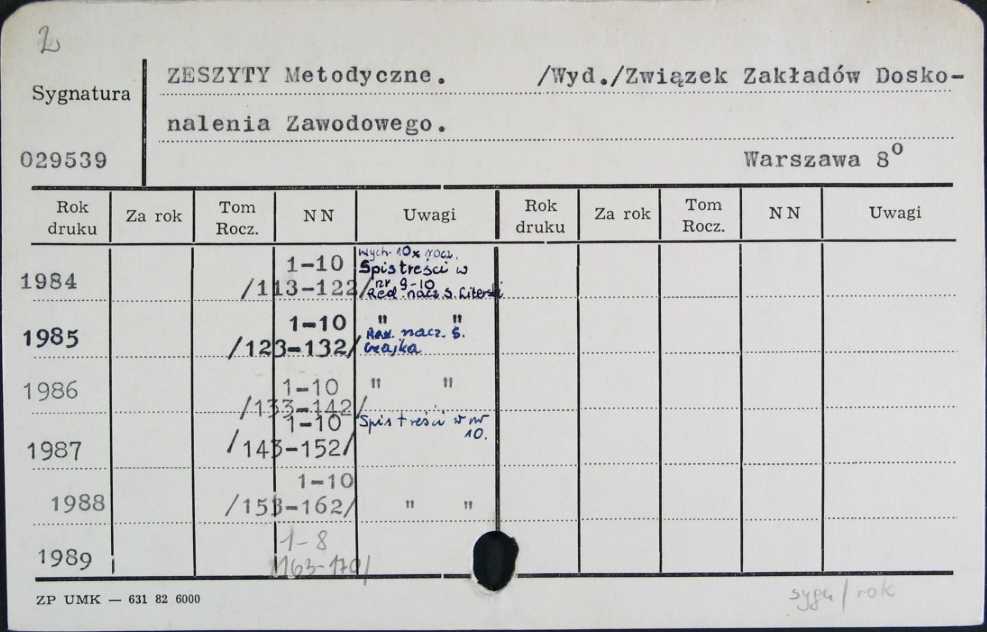 2
ZESZYTY Metodyczne. /Wyd./Związek Zakładów Dosko-
Sygnatura
nalenia Zawodowego.
029539
Warszawa 8º
Rok druku Za rok Tom Rocz. NN Uwagi Rok druku Za rok Tom Rocz. NN Uwagi
wych. 10x rocz.
1-10 Spis treści w
1984 nr 9-10
/113-122/ Red. nacz. S. Literski
1-10 " "
1985 Red. nacz. S.
/123-132/ Czajka
1986 1-10 " "
/133-142/
1-10 Spis treści w nr
10.
1987 /143-152/
1-10
1988 /153-162/ " "
1-8
1989 /163-170/
ZP UMK — 631 82 6000
sygn/rok